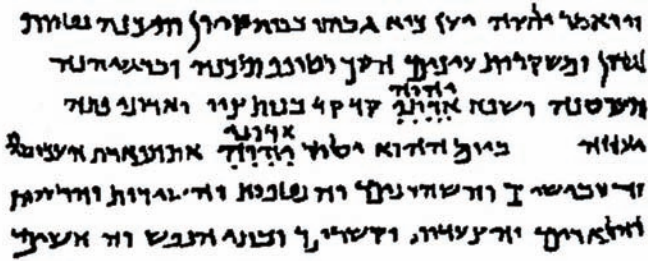 ויואמר יהוה יען כיא גבהו בנות ציון ותלכנה נטוות
גרון ומשקרות עינים הלוך וטופפ תלכנה וברגליהנה
יהוה
תעכסנה ושפח אדוני קדקד בנות ציון ואדוני פתהנה
אדוני
יערה ביום ההוא יסיר יהוה את תפארת העכסים
והשבישים והשהרנים והנטפות והשירות והרעלות
והפארים והצעדות והקשרים ובתי הנפש והלחשים